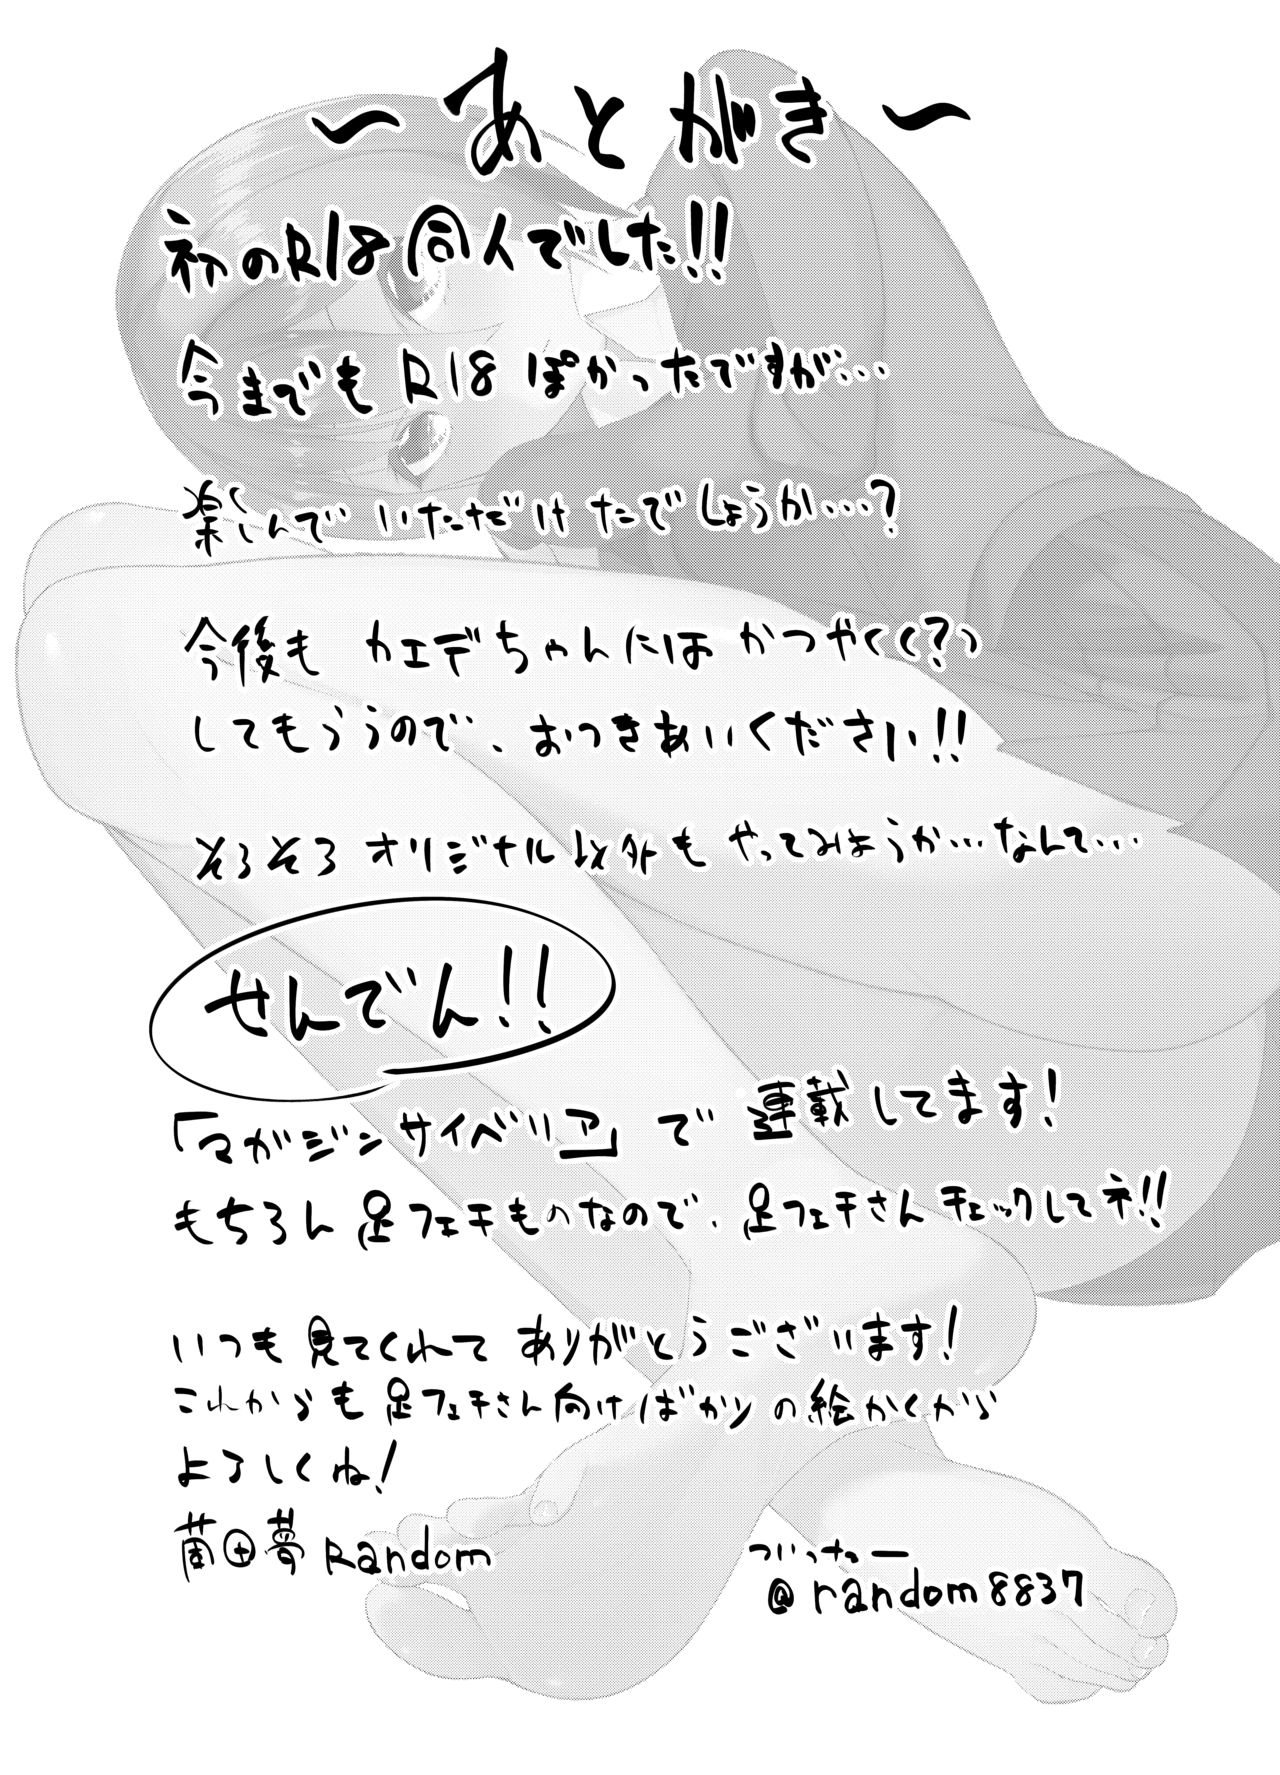 〜あとがき〜
初のR18同人でした!!
今までもR18ぽかったですが…
楽しんでいただけたでしょうか…?
今後もカエデちゃんにはかつやく(?)
してもらうので、おつきあいください!!
そろそろオリジナル以外もやってみようか…なんて…
せんでん!!
「マガジンサイベリア」で連載してます!
もちろん足フェチものなので、足フェチさんチェックしてネ!!
いつも見てくれてありがとうございます!
これからも足フェチさん向けばかりの絵かくから
よろしくね!
菌田夢Random
ついったー
@random8837